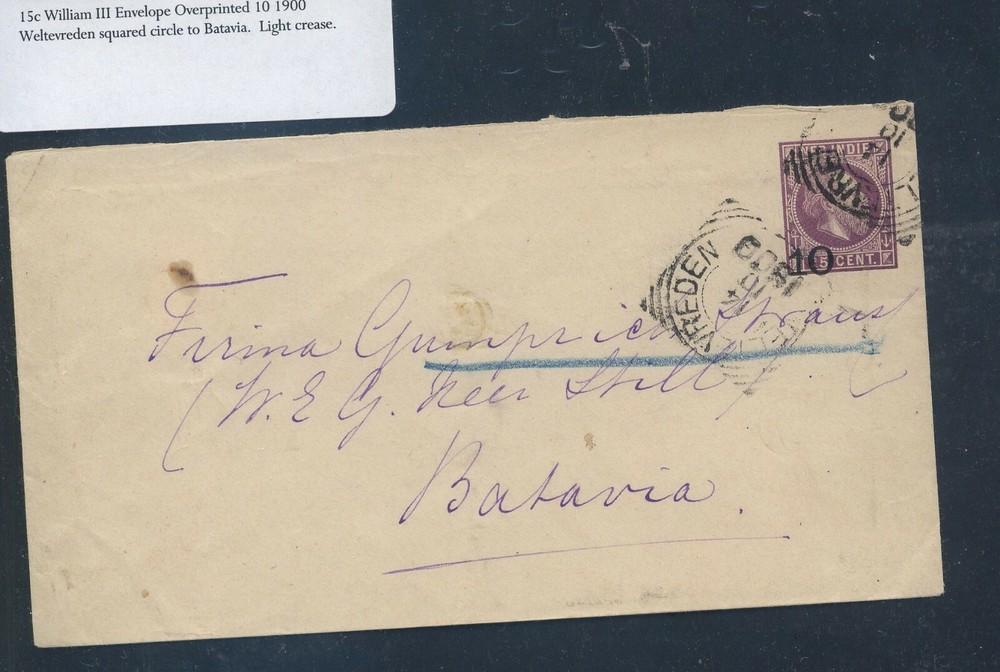 15c William III Envelope Overprinted 10 1900
Weltevreden squared circle to Batavia. Light crease.
NED. INDIE
15 CENT.
10
VREDEN
14
10
1900
Firma Gumprich Strauss
(W. E. G.
Batavia.